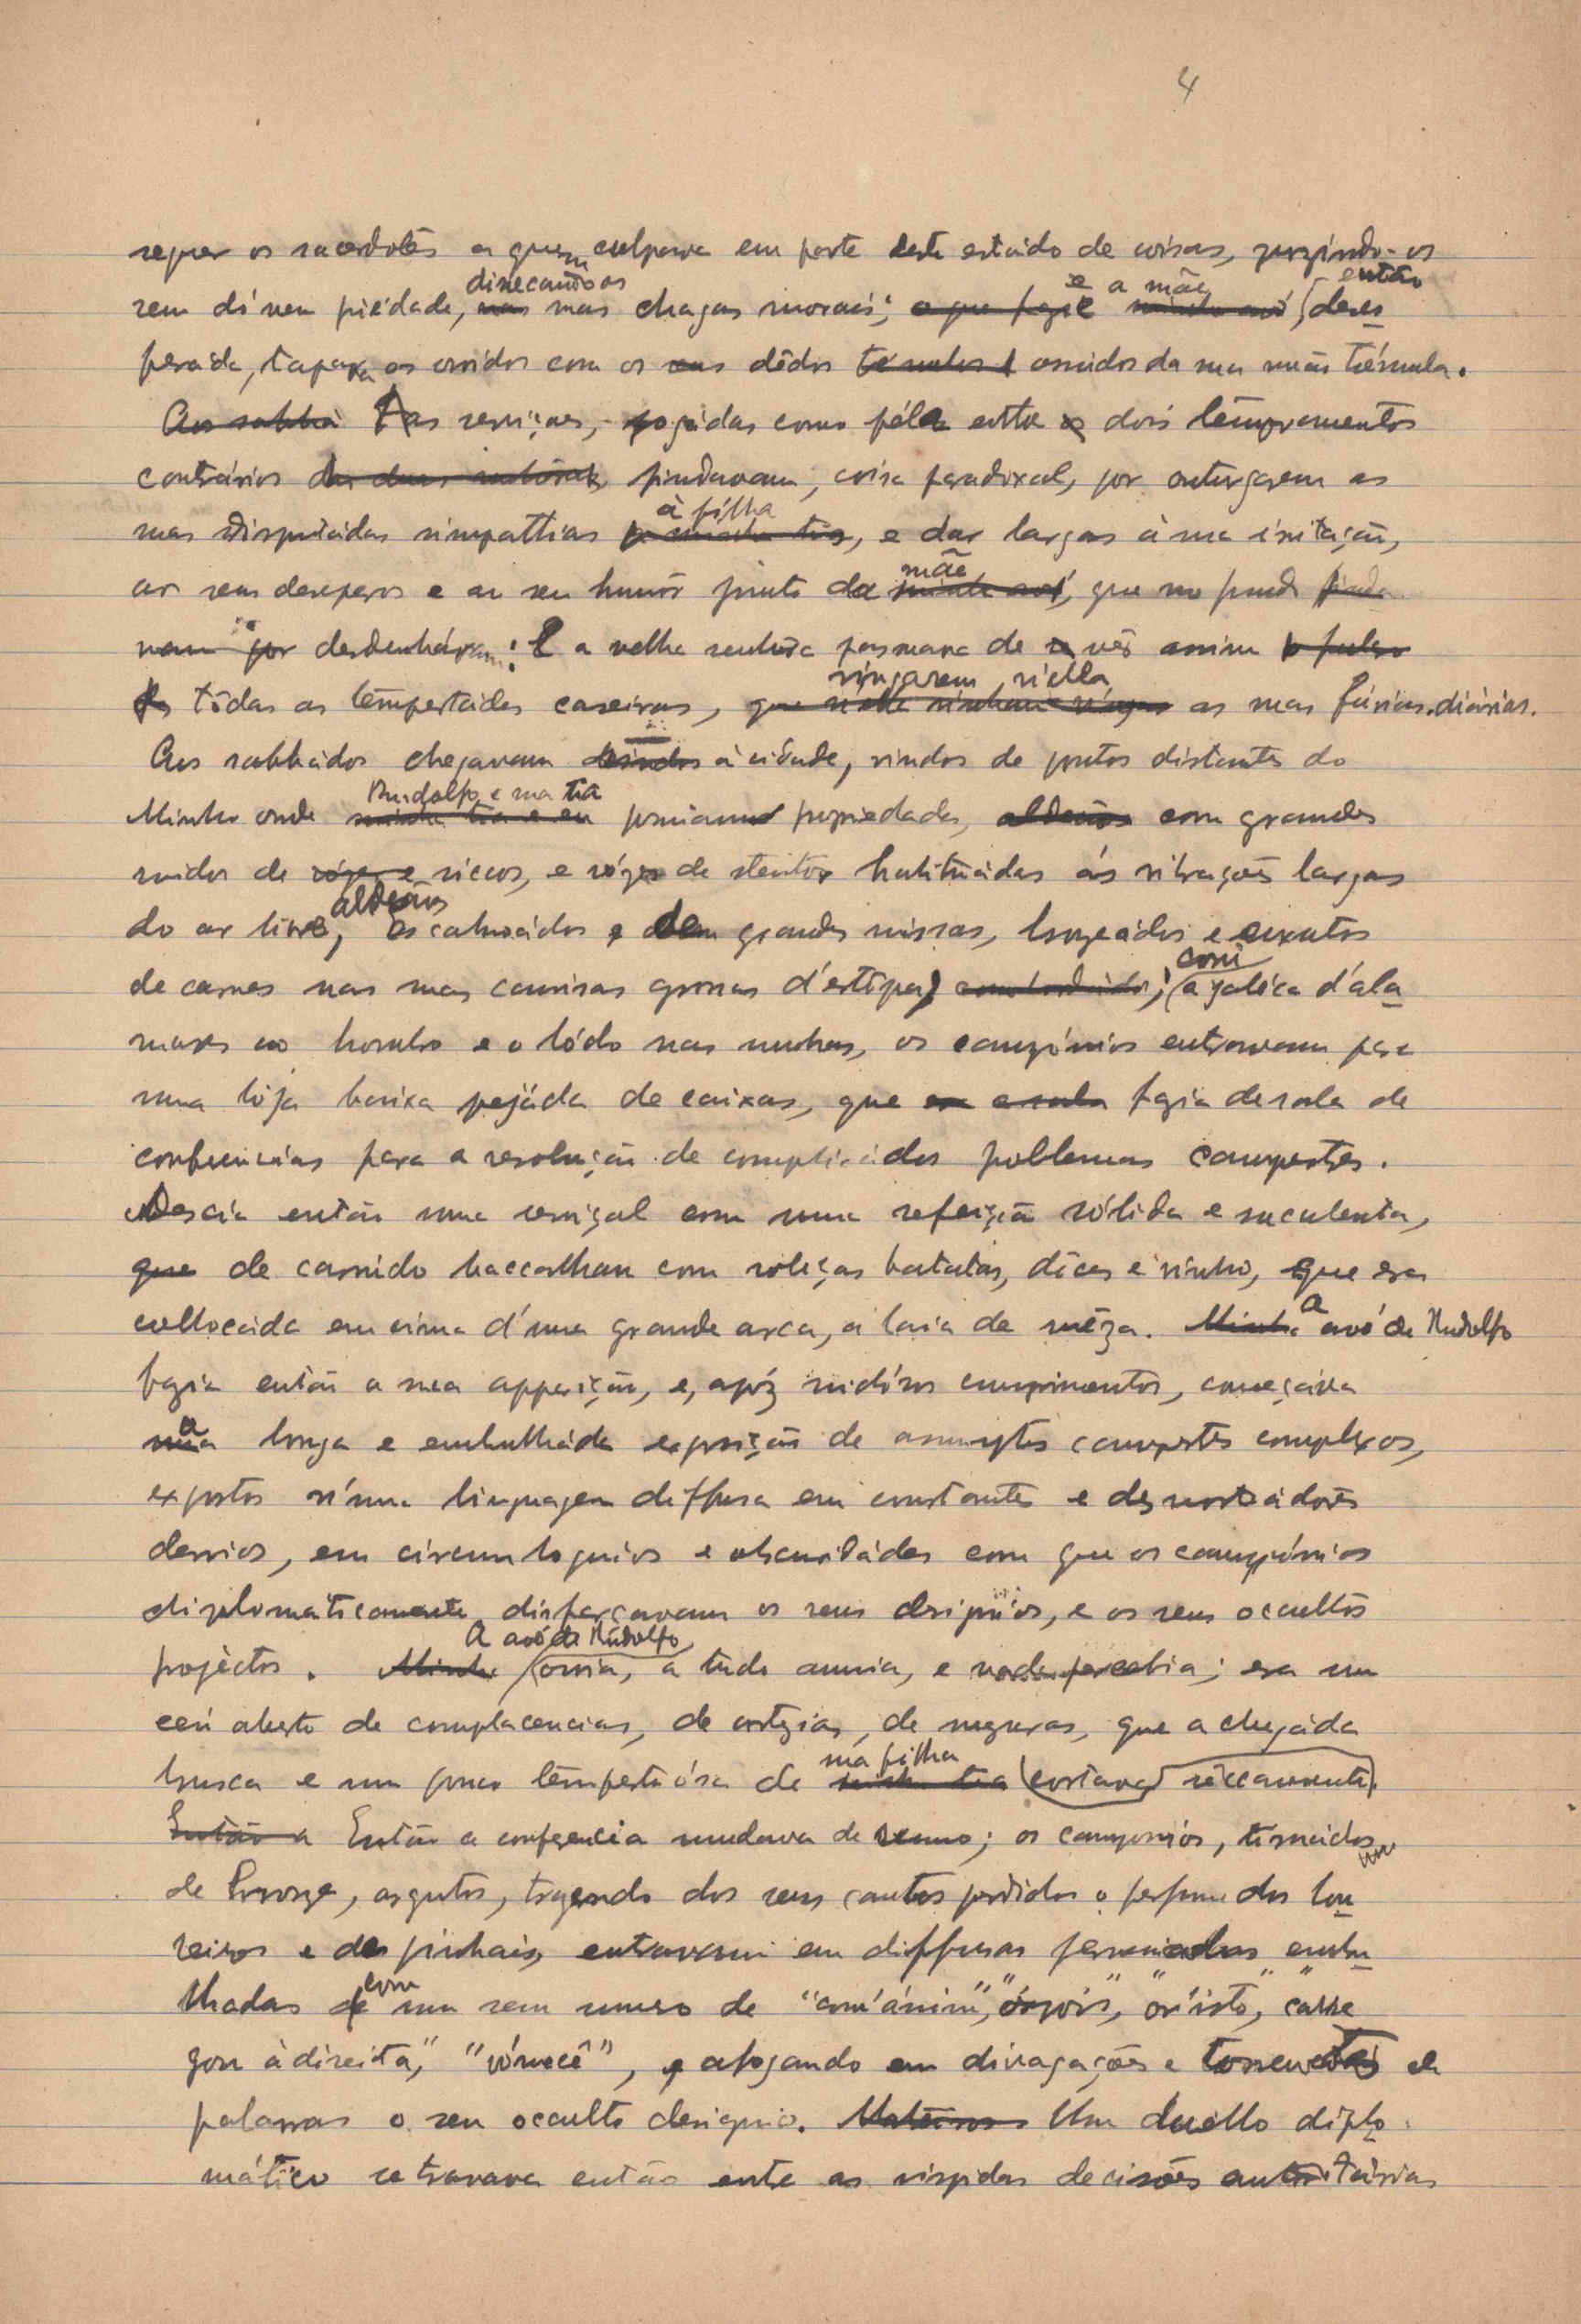 4
sequer os sacerdotes a quem culpava em parte deste estado de coisas, zurzindo-os
dissecando os
e a mãe então
sem dó nem piedade, nas suas chagas morais; o que fazia minha avó, deses
perada, tapava os ouvidos com os seus dêdos trémulos e ossudos da sua mão trémula.
Aos sabba As serviçaes, jogadas como péla entre os dois temperamentos
contrários das duas senhoras, findavam, coisa paradoxal, por outorgarem as
à filha
suas disputadas simpathias a minha tia, e dar largas à sua irritação,
mãe
ao seu desespero e ao seu humôr junto da minha avó, que no fundo
nam por desdenhávam: E a velha senhora pasmava de vêr assim
singarem n'ella
todas as tempestades caseiras, que n'ella vinham as suas fúrias diárias.
Aos sabbados chegavam à cidade, vindos de pontos distantes do
Rudolfo e sua tia
Minho onde minha tia e eu possuiamos propriedades, aldeãos com grandes
ruidos de vózes e sóccos, e vózes de stentor habituádas ás vibrações largas
aldeãos
do ar livre, escalvados e grandes suissas, bronzeádos e enxutos
com
de carnes nas suas camisas grossas d'estôpa; a jaléca d'ala
mares ao hombro e o lôdo nas unhas, os campónios entravam para
uma lója baixa pejáda de caixas, que fazia de sala de
conferencias para a resolução de complicados problemas campestres.
Descia então uma serviçal com uma refeição sólida e suculenta,
que de cosido baccalhau com roliças batatas, dôces e vinho, que era
collocada em cima d'uma grande arca, a laia de mêza. Minha a avó de Rudolfo
fazia então a sua apparição, e, após ruidósos cumprimentos, começáva
a longa e embrulháda exposição de assumptos campestres complexos,
expostos n'uma linguagem diffusa em constantes e desnorteadores
desvios, em circumloquios e obscuridádes com que os campónios
diplomaticamente disfarçavam os seus designios, e os seus occultos
A avó de Rudolfo
projéctos. Minha ouvia, a tudo anuia, e nada percebia; era um
ceu aberto de complacencias, de cortezias, de mezuras, que a chegáda
sua filha
brusca e um pouco tempestuósa de minha tia cortava sêccamente.
Então a Então a conferencia mudava de rumo; os camponios, tisnados
de bronze, argutos, trazendo dos seus cantos perdidos o perfume dos lou
reiros e dos pinhais, entravam em diffusas embru
com
lhadas de um sem numero de "com'ó'ánim", "órpois", "or'isto", "carre
gou à direita", "vómecê", e afogando em divagações e torrentes de
palavras o seu occulto designio. Um duello diplo
mático se travava então entre as rispidas decisões autoritárias